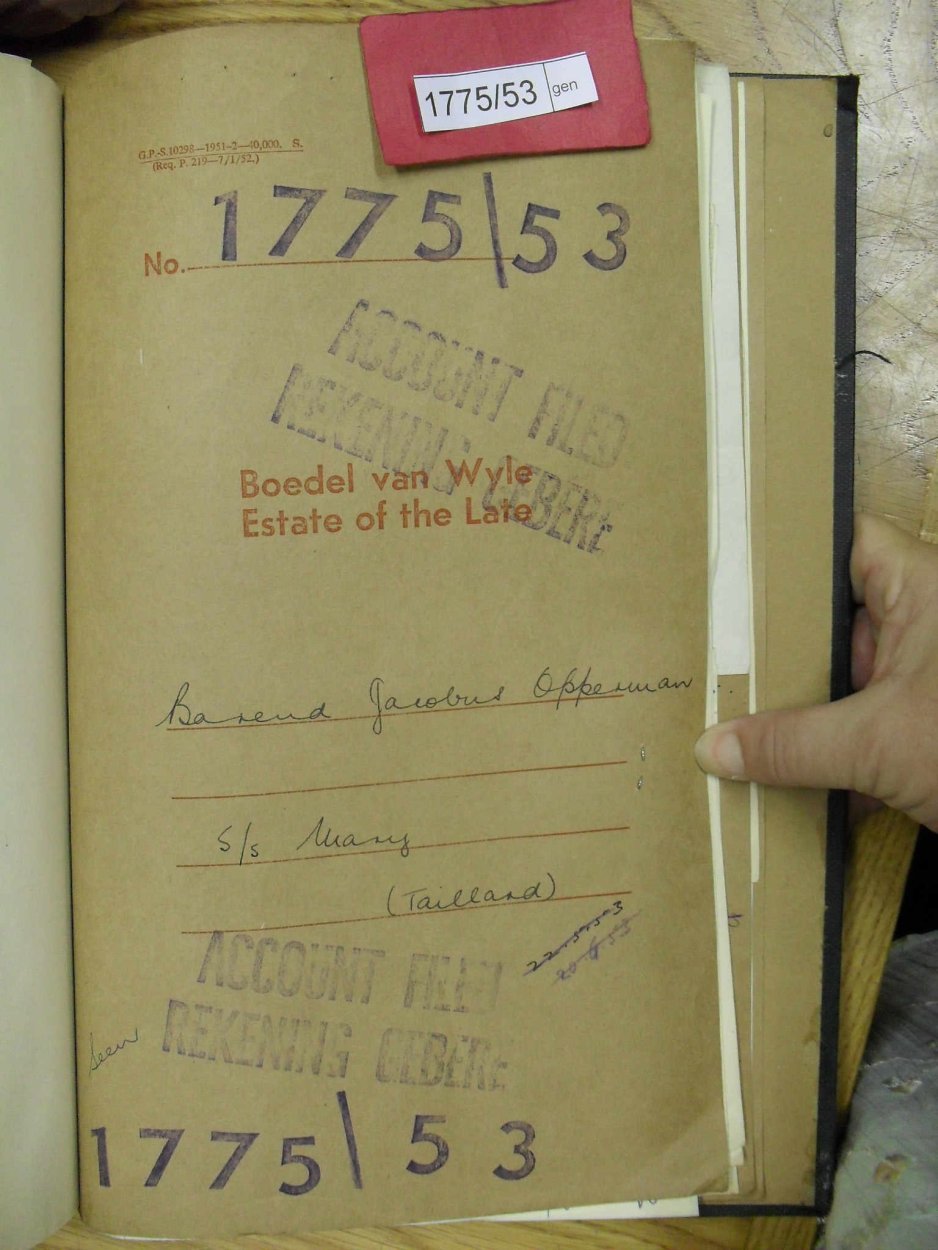 1775/53 gen
G.P.-S.10298—1951-2—40,000. S.
(Req. P. 219—7/1/52.)
No. 1775\53
ACCOUNT FILED
REKENING GEBERE
Boedel van Wyle
Estate of the Late
Barend Jacobus Opperman
s/s Mary
(Taillard)
22-5-53
ACCOUNT FILED
REKENING GEBERE
Seen
1775\53